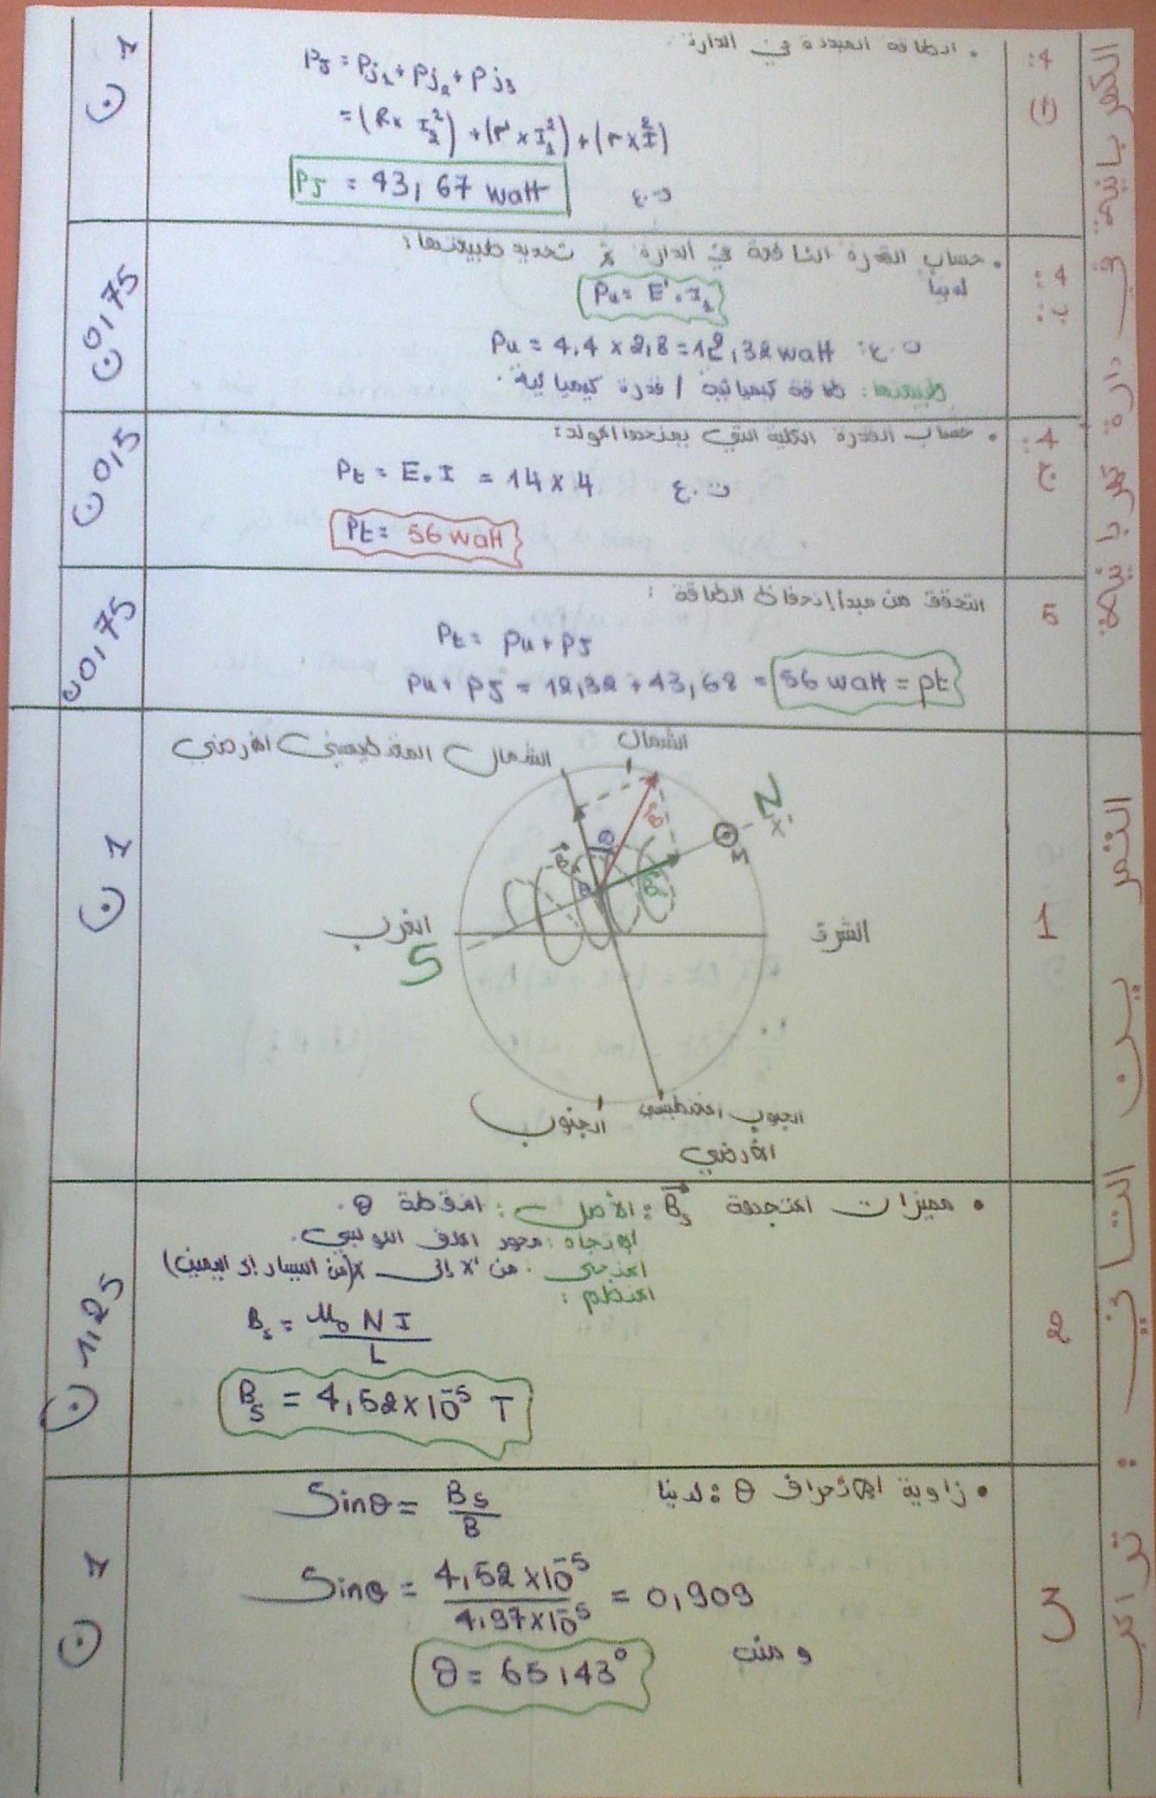 4:
(أ)
• الطاقة المبددة في الدارة:
Pj = Pj1 + Pj2 + Pj3
= (R × I2²) + (r' × I1²) + (r × I²)
ت.ع
PJ = 43,67 watt
1
4:
ب:
• حساب القدرة النافعة في الدارة و تحديد طبيعتها:
لدينا
Pu = E'.I1
ت.ع: Pu = 4,4 × 2,8 = 12,32 watt
طبيعتها: طاقة كيميائية / قدرة كيميائية.
0,75
4:
ج
• حساب القدرة الكلية التي يمنحها المولد:
ت.ع Pt = E.I = 14 × 4
Pt = 56 watt
0,5
5
التحقق من مبدأ إنحفاظ الطاقة:
Pt = Pu + PJ
Pu + PJ = 12,32 + 43,68 = 56 watt = pt
0,75
الشمال
الشمال المغنطيسي الأرضي
N
x'
M
B
θ
الشرق
الغرب
S
الجنوب
الجنوب المغنطيسي
الأرضي
1
1
• مميزات المتجهة Bs: الأصل: النقطة O.
الإتجاه: محور الملف اللولبي.
المنحى: من x' إلى x (من اليسار إلى اليمين)
المنظم:
Bs = μ0 N I / L
Bs = 4,52×10⁻⁵ T
2
1,25
• زاوية الإنحراف θ: لدينا
Sinθ = Bs / B
Sinθ = 4,52×10⁻⁵ / 4,97×10⁻⁵ = 0,909
و منه
θ = 65,43°
3
1
دارة كهربائية
التمرين الثاني: